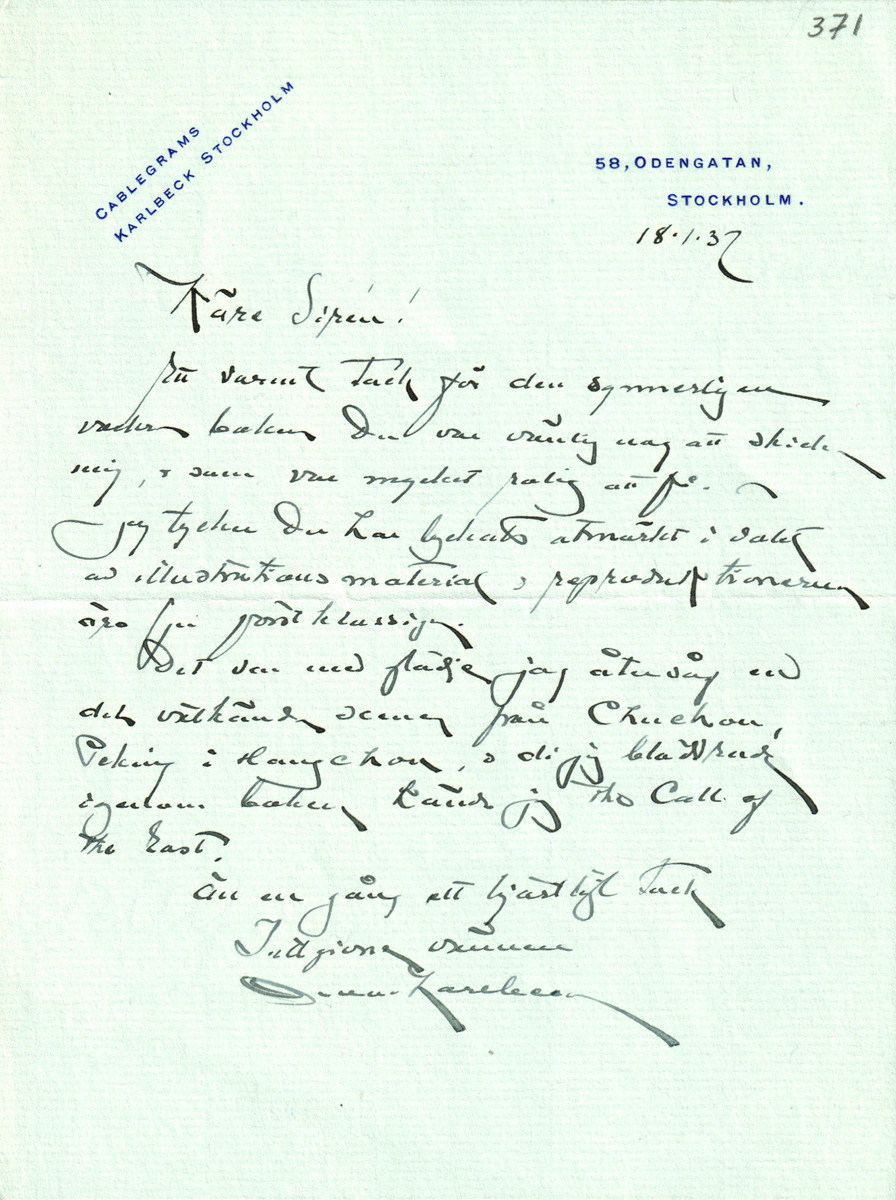 371
CABLEGRAMS
KARLBECK STOCKHOLM
58, ODENGATAN,
STOCKHOLM.
18.1.37
Käre Sirén!
Ett varmt tack för den synnerligen
vackra boken Du var vänlig nog att skicka
mig, & som var mycket rolig att få.
Jag tycker Du har lyckats utmärkt i valet
av illustrationsmaterial & reproduktionerna
äro ju förstklassiga.
Det var med glädje jag återsåg en
del välkända scener från Chuchou,
Peking & Hangchou, & då jag bläddrade
igenom boken kände jag the Call of
the East!
Än en gång ett hjärtligt tack
Tillgivne vännen
Orvar Karlbeck